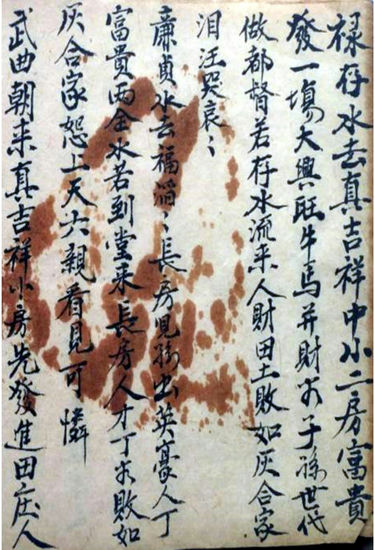 禄存水去真吉祥中小二房富貴
發一塲大興旺牛馬并財子孫世代
做都督若存水流来人財田土敗如灰合家
泪汪哭哀〻
廉貞水去福滔〻長房児孫出英豪人丁
富貴両全水若到堂来長房人才丁敗如
灰合家怨上天六親看見可憐
武曲朝来真吉祥小房先發進田庄人